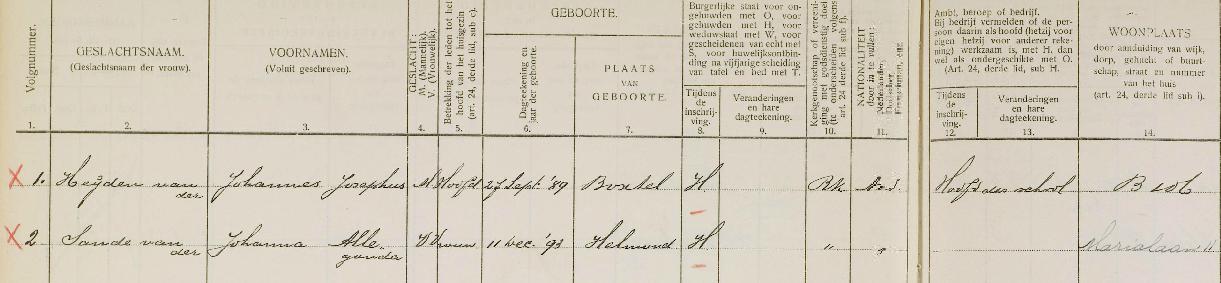 Volgnummer.
GESLACHTSNAAM.
(Geslachtsnaam der vrouw).
VOORNAMEN.
(Voluit geschreven).
GESLACHT:
M. (Mannelijk).
V. (Vrouwelijk).
Betrekking der leden tot het
hoofd van het huisgezin
(art. 24, derde lid, sub c).
GEBOORTE.
Dagteekening en
jaar der geboorte.
PLAATS
VAN
GEBOORTE.
Burgerlijke staat voor on-
gehuwden met O, voor
gehuwden met H, voor
weduwstaat met W, voor
gescheidenen van echt met
S, voor huwelijksontbin-
ding na vijfjarige scheiding
van tafel en bed met T.
Tijdens
de
inschrij-
ving.
Veranderingen
en hare
dagteekening.
Kerkgenootschap of vereeni-
ging met godsdienstig doel
(te onderscheiden volgens
art. 24 derde lid sub f).
NATIONALITEIT
door in te vullen:
Nederlander,
Duitscher,
Franschman, enz.
Ambt, beroep of bedrijf.
Bij bedrijf vermelden of de per-
soon daarin als hoofd (hetzij voor
eigen hetzij voor anderer reke-
ning) werkzaam is, met H. dan
wel als ondergeschikte met O.
(Art. 24, derde lid, sub H.
Tijdens
de
inschrij-
ving.
Veranderingen
en hare
dagteekening.
WOONPLAATS
door aanduiding van wijk,
dorp, gehucht of buurt-
schap, straat en nummer
van het huis
(art. 24, derde lid sub i).
1. 2. 3. 4. 5. 6. 7. 8. 9. 10. 11. 12. 13. 14.
X 1. Heijden van der Johannes Josephus M Hoofd 27 Sept. '89 Boxtel H RK Ned. Hoofd der school
X 2 Sande van der Johanna Allegonda V Vrouw 11 Dec. '91 Helmond H " "